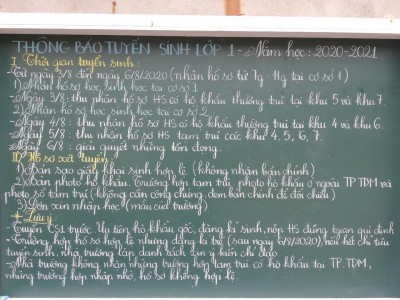 THÔNG BÁO TUYỂN SINH LỚP 1 - Năm học: 2020-2021
I Thời gian tuyển sinh:
-Từ ngày 3/8 đến ngày 6/8/2020 (nhận hồ sơ từ 7g-11g tại cơ sở 1)
1) Nhận hồ sơ học sinh học tại cơ sở 1
-Ngày 3/8: thu nhận hồ sơ HS có hộ khẩu thường trú tại khu 5 và khu 7.
2) Nhận hồ sơ học sinh học tại cơ sở 2
-Ngày 4/8: thu nhận hồ sơ HS có hộ khẩu thường trú tại khu 4 và khu 6.
-Ngày 5/8: thu nhận hồ sơ HS tạm trú các khu 4, 5, 6, 7.
-Ngày 6/8: giải quyết những tồn đọng.
II Hồ sơ xét tuyển
1) Bản sao giấy khai sinh hợp lệ (không nhận bản chính)
2) Bản photo hộ khẩu. Trường hợp tạm trú photo hộ khẩu ở ngoài TP TDM và
photo sổ tạm trú (không cần công chứng, đem bản chính để đối chiếu)
3) Đơn xin nhập học (mẫu của trường)
+ Lưu ý:
-Tuyến CS1 trước. Ưu tiên hộ khẩu gốc, đăng kí sinh, nộp HS đúng thời gian qui định
-Trường hợp hồ sơ hợp lệ nhưng đăng kí trễ (sau ngày 6/8/2020), nếu hết chỉ tiêu
tuyển sinh, nhà trường lập danh sách xin ý kiến chỉ đạo
-Nhà trường không nhận những trường hợp tạm trú có hộ khẩu tại TP.TDM,
những trường hợp nhập nhờ, hồ sơ không hợp lệ.